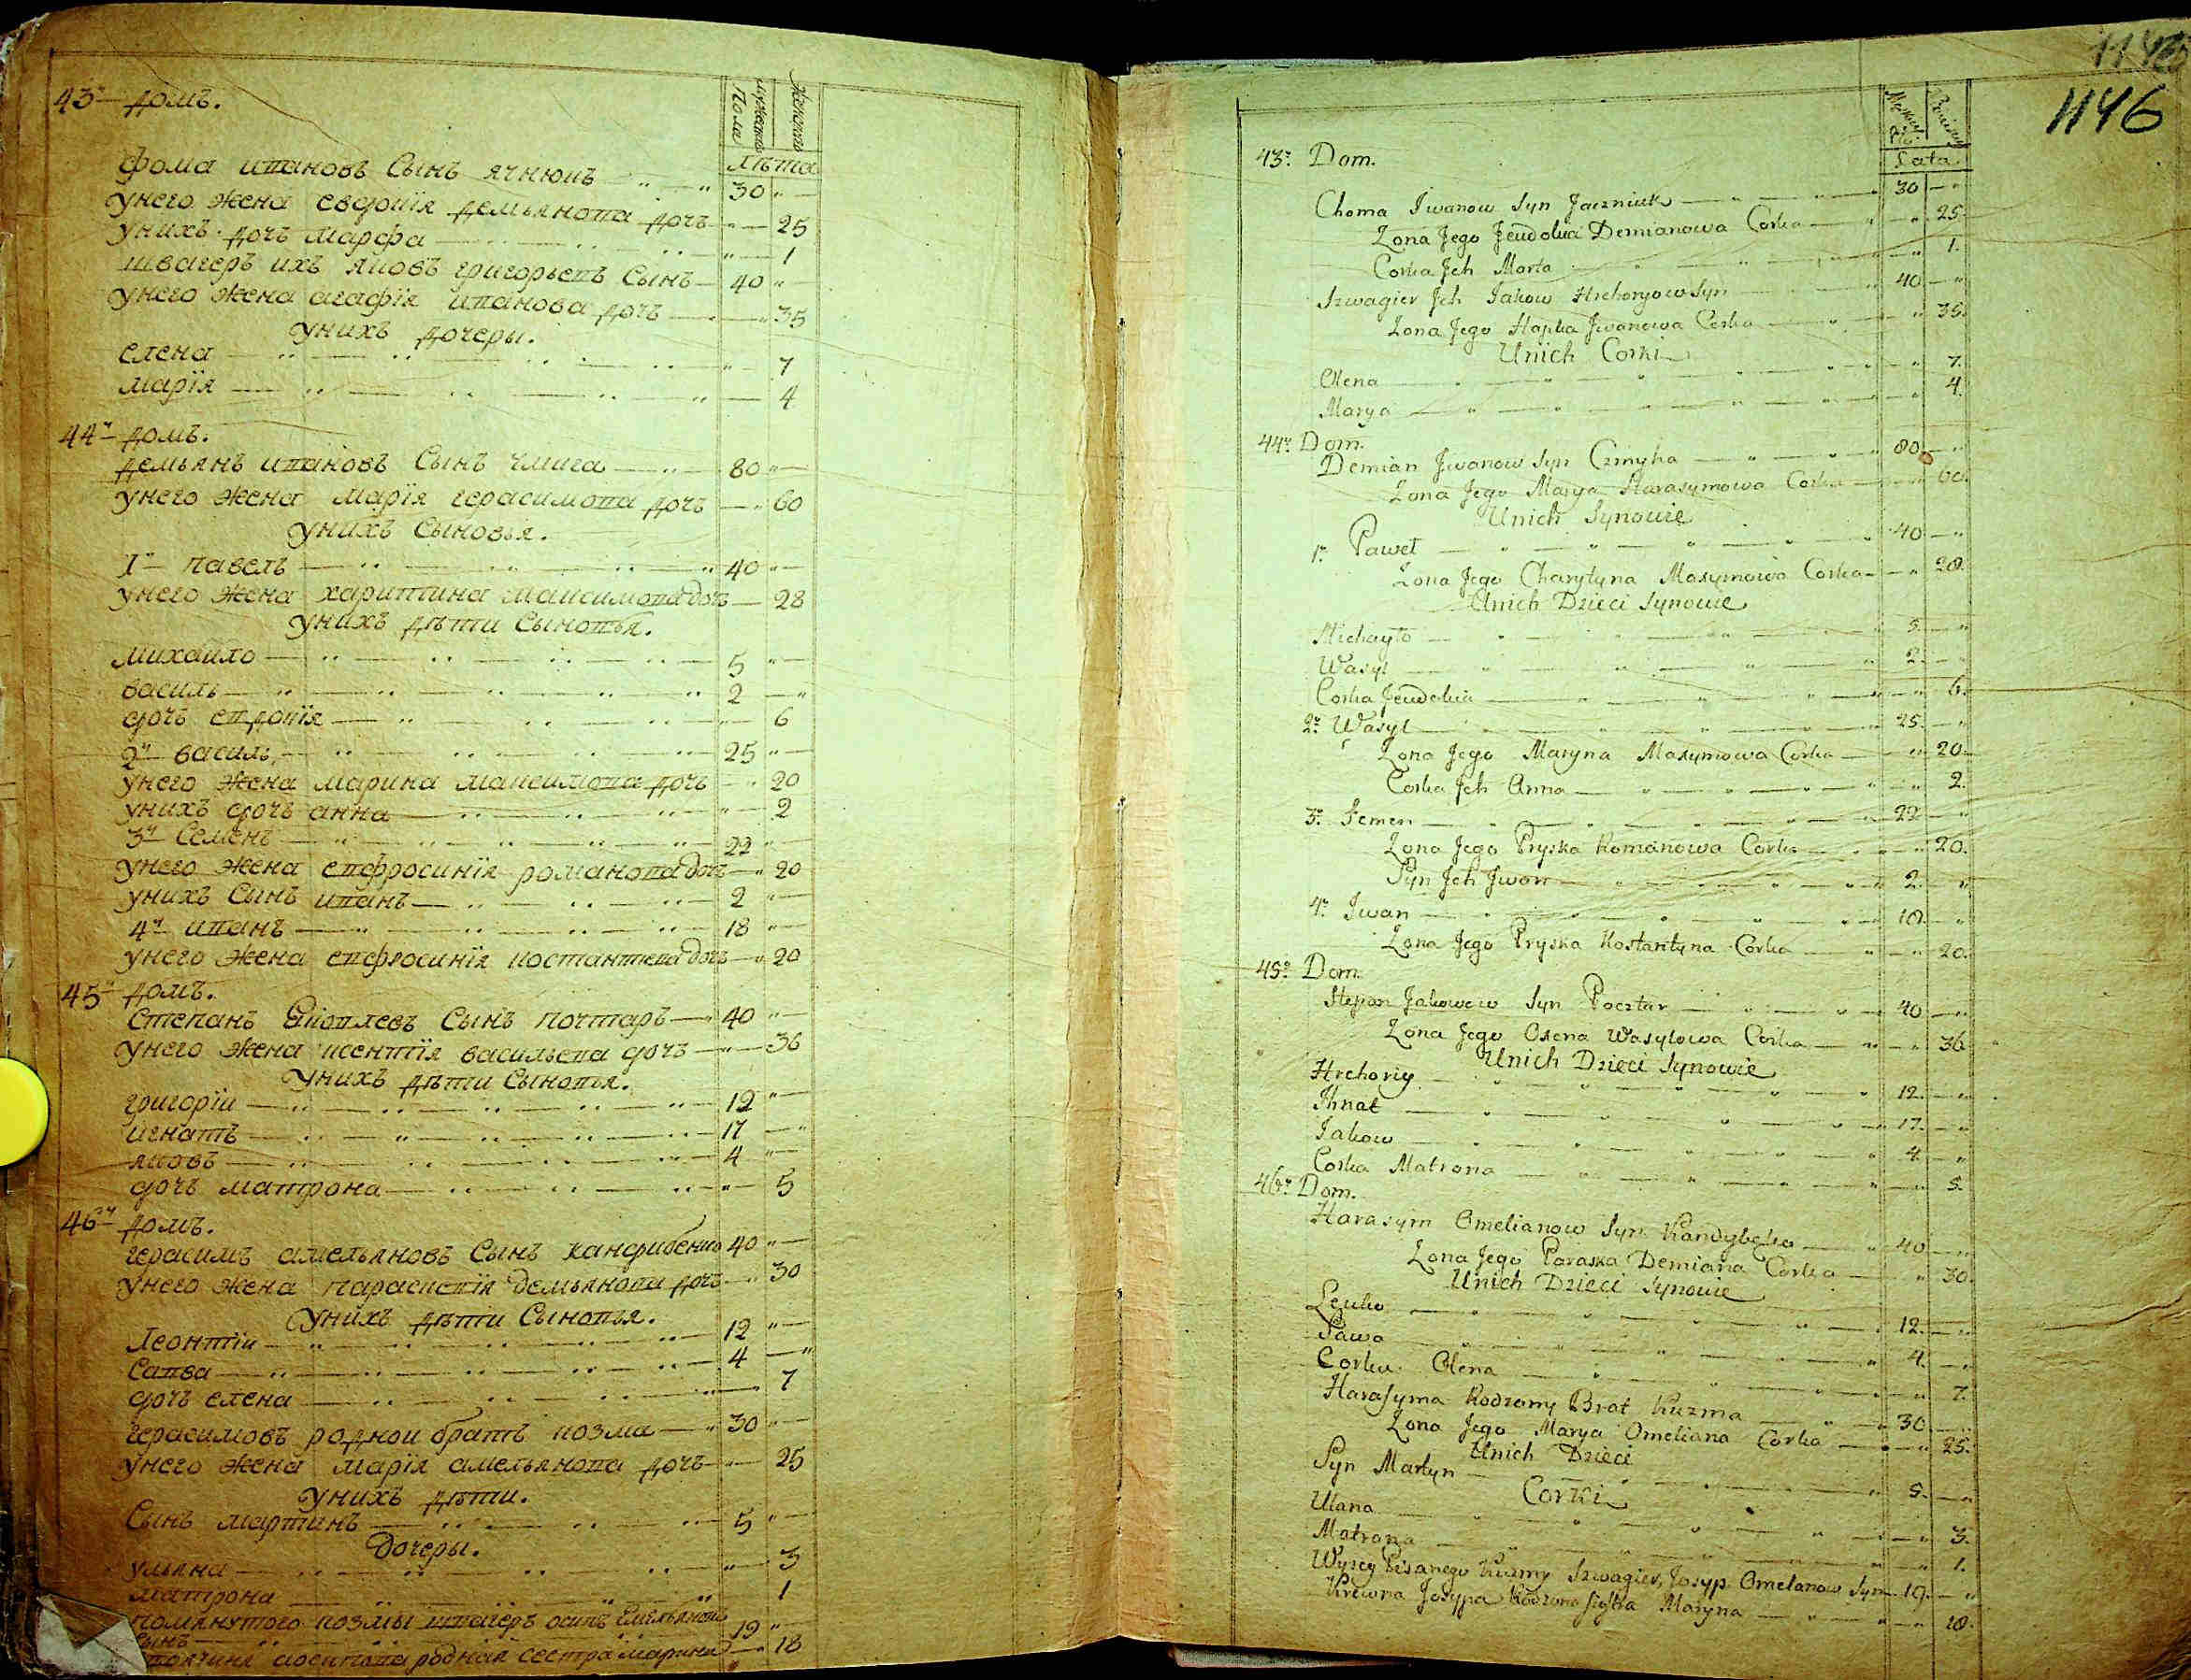 43й домъ.
мужеска
Пола
женска
лѣта
фома ивановъ Сынъ ячнюкъ 30
унего жена евдокїя демьянова дочъ 25
унихъ дочъ марфа 1
швагеръ ихъ яковъ григорьевъ Сынъ 40
унего жена агафїя иванова дочъ 35
унихъ дочеры.
елена 7
марїя 4
44й домъ.
демьянъ ивановъ Сынъ чмига 80
унего жена марїя герасимова дочъ 60
унихъ Сыновья.
1й павелъ 40
унего жена харитина максимова дочъ 28
унихъ дѣти Сыновья.
михайло 5
василь 2
дочъ евдокїя 6
2й василь 25
унего жена марина максимова дочъ 20
унихъ дочъ анна 2
3й Семенъ 22
унего жена евфросинїя романова дочъ 20
унихъ Сынъ иванъ 2
4й иванъ 18
унего жена евфросинїя костантнова дочъ 20
45й домъ.
Степанъ яковлевъ Сынъ почтаръ 40
унего жена ксентїя васильева дочъ 36
унихъ дѣти Сыновья.
григорїи 12
игнатъ 17
яковъ 4
дочъ матрона 5
46й домъ.
герасимъ амельяновъ Сынъ кандибенко 40
унего жена параскевїя демьянова дочъ 30
унихъ дѣти Сыновья.
Леонтїи 12
Савва 4
дочъ елена 7
герасимовъ роднои братъ козма 30
унего жена марїя амельянова дочъ 25
унихъ дѣти.
Сынъ мартинъ 5
Дочеры.
ульяна 3
матрона 1
помянутого козмы швагеръ осипъ Емельяновъ
сынъ 19
осипова родная сестра марина 18
1146
1146
43. Dom.
Lata
Choma Iwanow Syn Jaczniuk 30
Żona Jego Jewdokia Demianowa Corka 25
Corka Jch Marta 1.
Szwagier Jch Jakow Hrehoryow Syn 40
Żona Jego Hapka Jwanowa Corka 35.
Unich Corki
Olena 7.
Marya 4.
44. Dom.
Demian Jwanow Syn Czmyha 80
Żona Jego Marya Harasymowa Corka 60.
Unich Synowie
1. Paweł 40
Żona Jego Charytyna Maxymowa Corka 28.
Unich Dzieci Synowie
Michayło 5.
Wasyl 2.
Corka Jewdokia 6.
2. Wasyl 25.
Żona Jego Maryna Maxymowa Corka 20
Corka Jch Anna 2.
3. Semen 22
Żona Jego Pryska Romanowa Corka 20.
Syn Jch Jwan 2.
4. Iwan 18.
Żona Jego Pryska Kostantyna Corka 20.
45. Dom.
Stepan Jakowow Syn Pocztar 40
Żona Jego Oxena Wasylowa Corka 36
Unich Dzieci Synowie
Hrehoriy 12.
Ihnat 17.
Jakow 4.
Corka Matrona 5.
46. Dom.
Harasym Omelianow Syn Kandybcho 40
Żona Jego Paraska Demiana Corka 30.
Unich Dzieci Synowie
Lewko 12.
Sawa 4.
Corka Olena 7.
Harasyma Rodzony Brat Kuzma 30
Żona Jego Marya Omeliana Corka 25.
Unich Dzieci
Syn Martyn 5.
Corki
Ulana 3.
Matrona 1.
Wyżey Pisanego Kuzmy Szwagier, Josyp Omelanow Syn 19.
Krewna Josypa Rodzona Siostra Maryna 18.